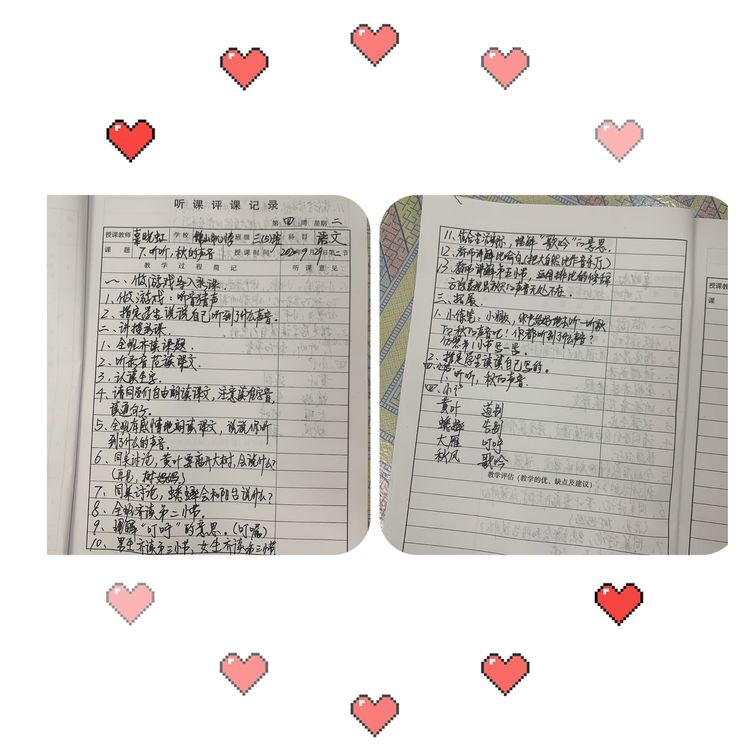 听课评课记录
第 四 周 星期 二
授课教师 学校 班级 三(5)班 科目 语文
课题 7.听听,秋的声音 授课时间 9月29日第二节
教学过程简记 听课意见
一、做游戏导入新课
1、做游戏:听音猜声
2、指定学生说说自己听到了什么声音。
二、讲授新课
1、全班齐读课题
2、听录音范读课文
3、认读生字
4、请同学们自由朗读课文,注意读准字音
读通句子
5、全班有感情地朗读课文,说说你听
到了什么的声音.
6、同桌讨论,黄叶要离开大树,会说什么?
(再见,树妈妈)
7、同桌讨论,蟋蟀会和阳台说什么?
8、全班齐读第二小节.
9、理解"叮咛"的意思。(叮嘱)
10、男生齐读第三小节,女生齐读第三小节
11、结合生活实际,理解"歌吟"的意思.
12、教师讲解比喻句(把大自然比作音乐厅)
13、教师讲解第五小节,运用排比的修辞
写出秋的声音无处不在.
三、拓展
1、小练笔:小朋友,你也好好地去听一听秋
的声音吧!你都听到了什么声音?
仿照第1小节写一写.
2、指定学生读读自己写的.
四、
1、听听,秋的声音.
四、
黄叶 道别
蟋蟀 告别
大雁 叮咛
秋风 歌吟
教学评估(教学的优、缺点及建议)
课